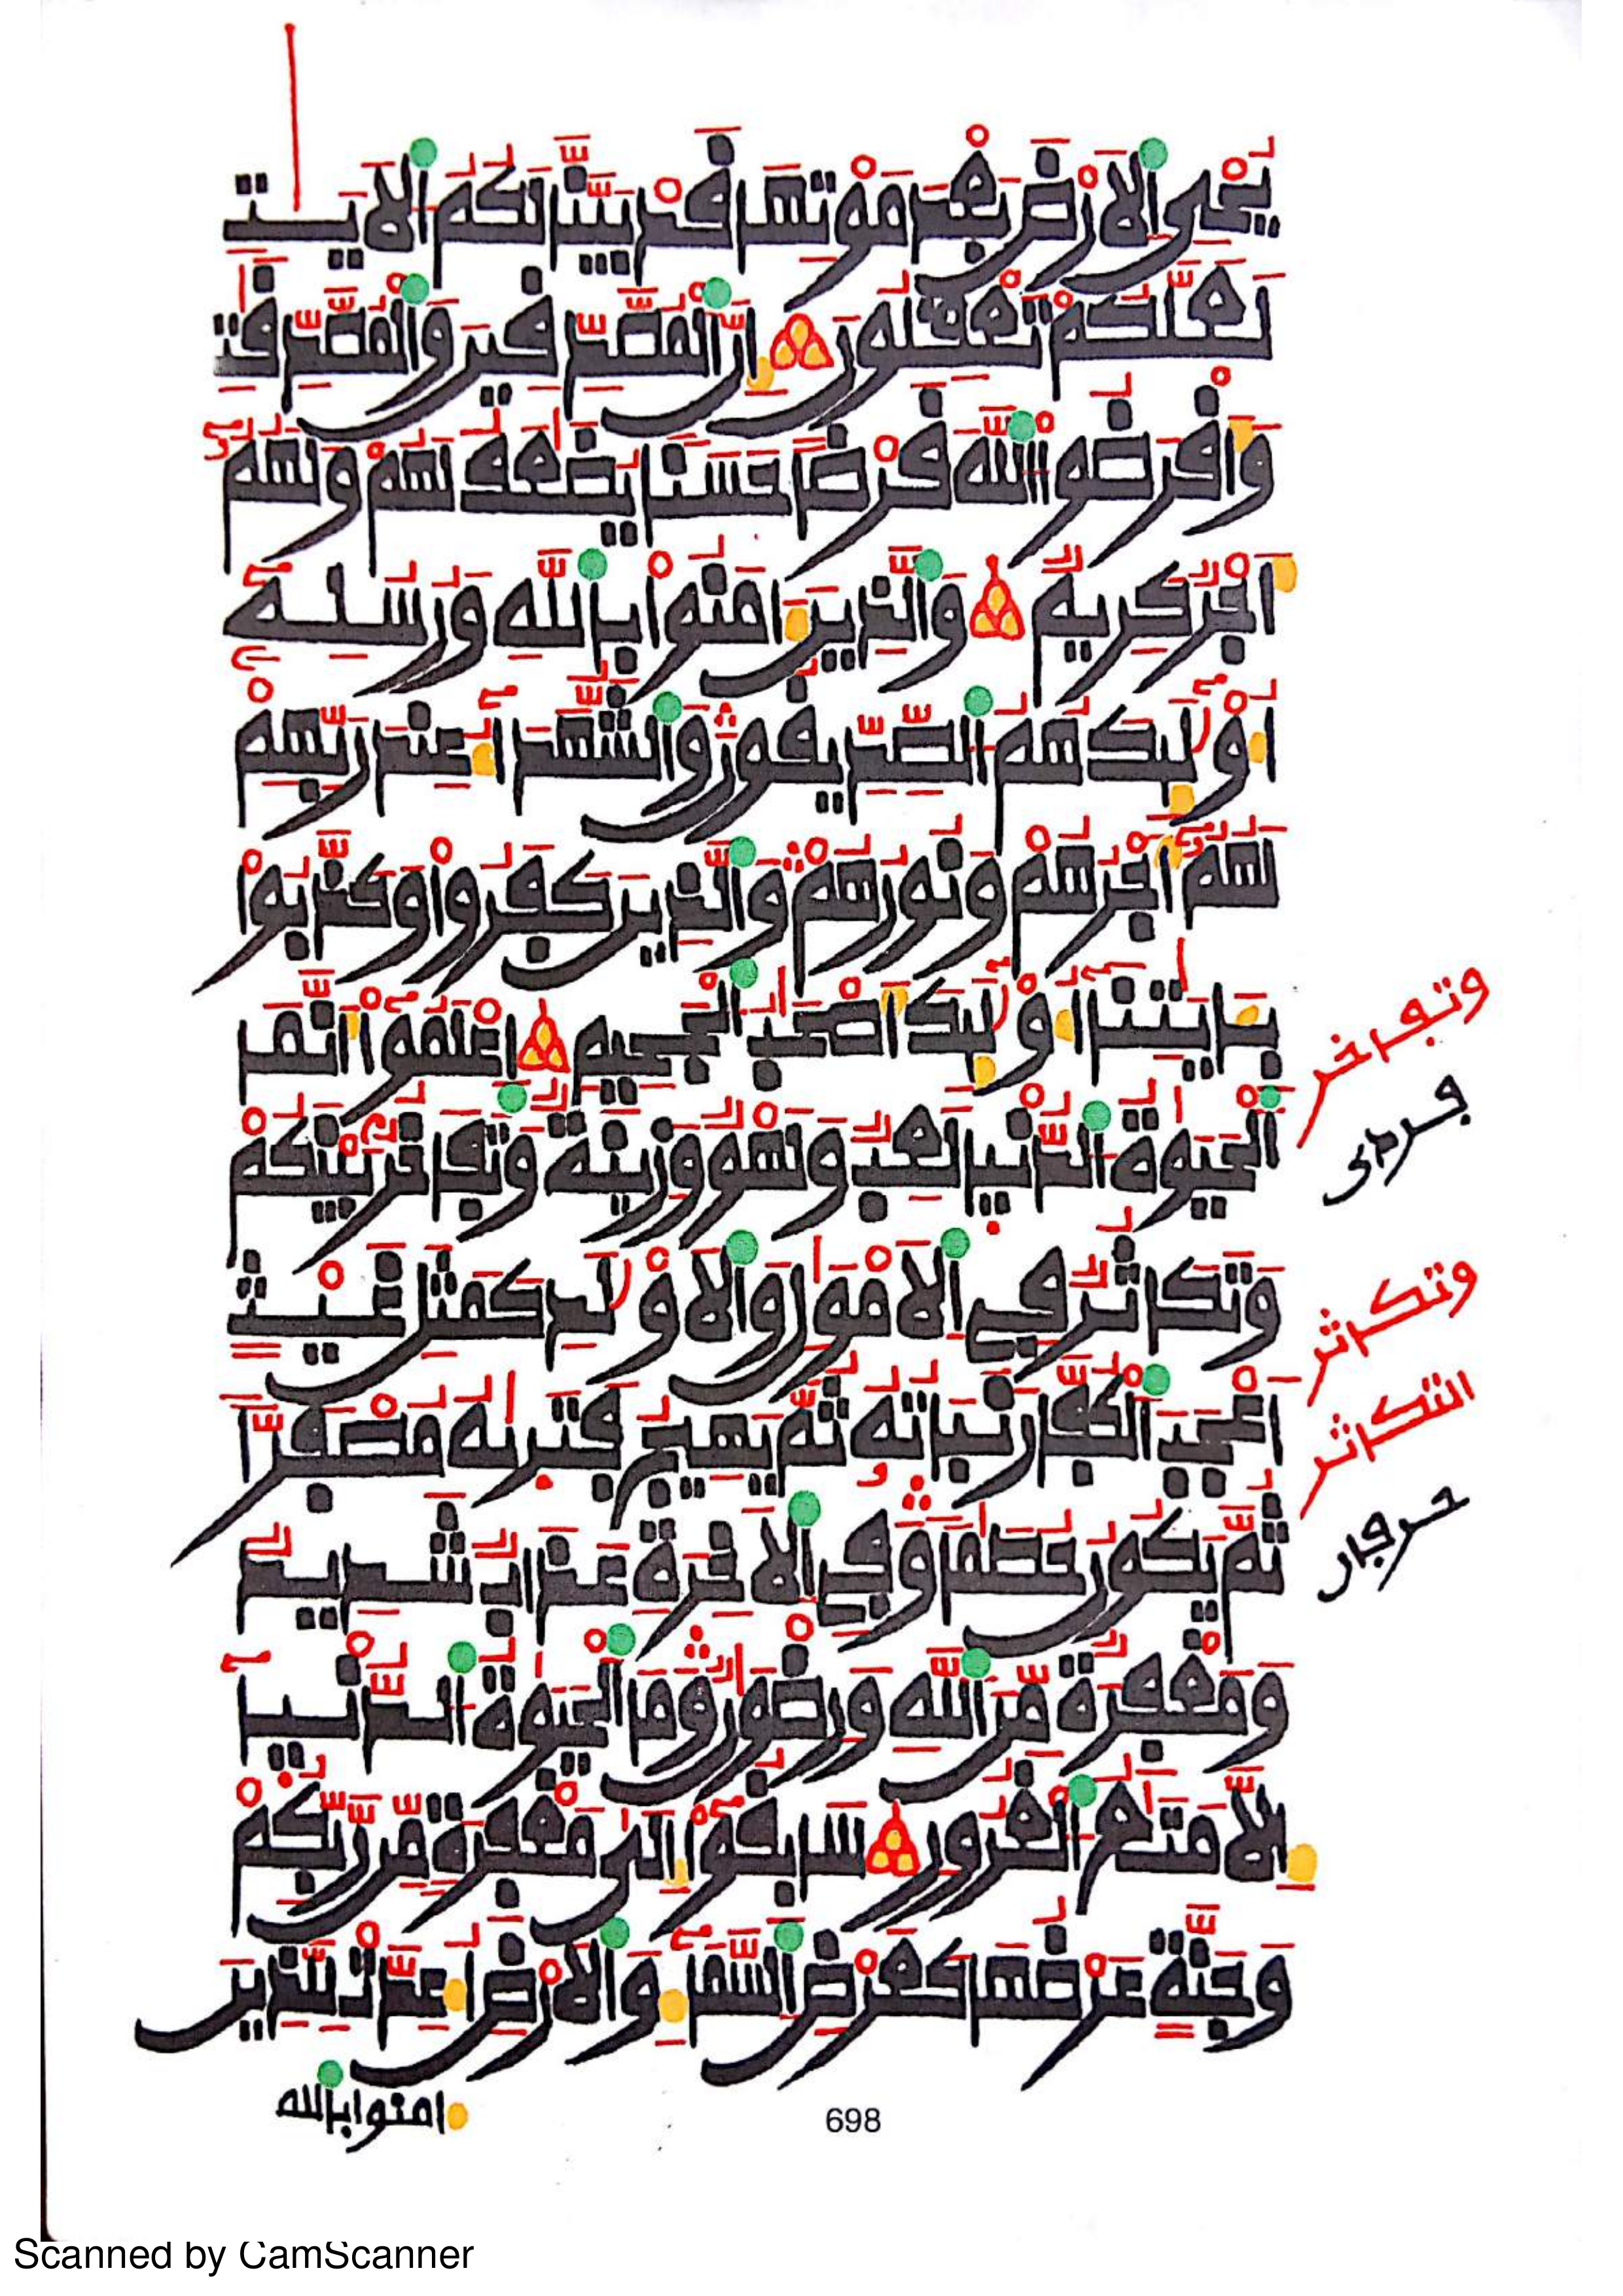 يُحْيِ اِلَارْضَ بَعْدَ مَوْتِهَا قَدْ بَيَّنَّا لَكُمُ اُلَايَٰتِ
لَعَلَّكُمْ تَعْقِلُونَ إِنَّ اَلْمُصَّدِّقِينَ وَالْمُصَّدِّقَٰتِ
وَأَقْرَضُواْ اُللَّهَ قَرْضًا حَسَنًا يُضَٰعَفُ لَهُمْ وَلَهُمُۥٓ
أَجْرٌ كَرِيمٌ وَالذِينَ ءَامَنُواْ بِاللَّهِ وَرُسُلِهِۦٓ
أُوْلَٰٓئِكَ هُمُ اُلصِّدِّيقُونَ وَالشُّهَدَآءُ عِندَ رَبِّهِمْ
لَهُمُۥٓ أَجْرُهُمْ وَنُورُهُمْ وَالذِينَ كَفَرُواْ وَكَذَّبُواْ
بِـَٔايَٰتِنَآ أُوْلَٰٓئِكَ أَصْحَٰبُ اُلْجَحِيمِ اِعْلَمُوٓاْ أَنَّمَا
اَلْحَيَوٰةُ اُلدُّنْيَا لَعِبٌ وَلَهْوٌ وَزِينَةٌ وَتَفَاخُرٌ بَيْنَكُمْ
وَتَكَاثُرٌ فِي اِلَامْوَٰلِ وَالَاوْلَٰدِ كَمَثَلِ غَيْثٍ
اَعْجَبَ اَلْكُفَّارَ نَبَاتُهُۥ ثُمَّ يَهِيجُ فَتَرَىٰهُ مُصْفَرًّا
ثُمَّ يَكُونُ حُطَٰمًا وَفِي اِلَاخِرَةِ عَذَابٌ شَدِيدٌ
وَمَغْفِرَةٌ مِّنَ اَللَّهِ وَرِضْوَٰنٌ وَمَا اَلْحَيَوٰةُ اُلدُّنْيَآ
إِلَّا مَتَٰعُ اُلْغُرُورِ سَابِقُوٓاْ إِلَىٰ مَغْفِرَةٍ مِّن رَّبِّكُمْ
وَجَنَّةٍ عَرْضُهَا كَعَرْضِ اِلسَّمَآءِ وَالَارْضِ أُعِدَّتْ لِلذِينَ
ءامنوا بالله
وتفاخر
وتكاثر
التكاثر
698
Scanned by CamScanner